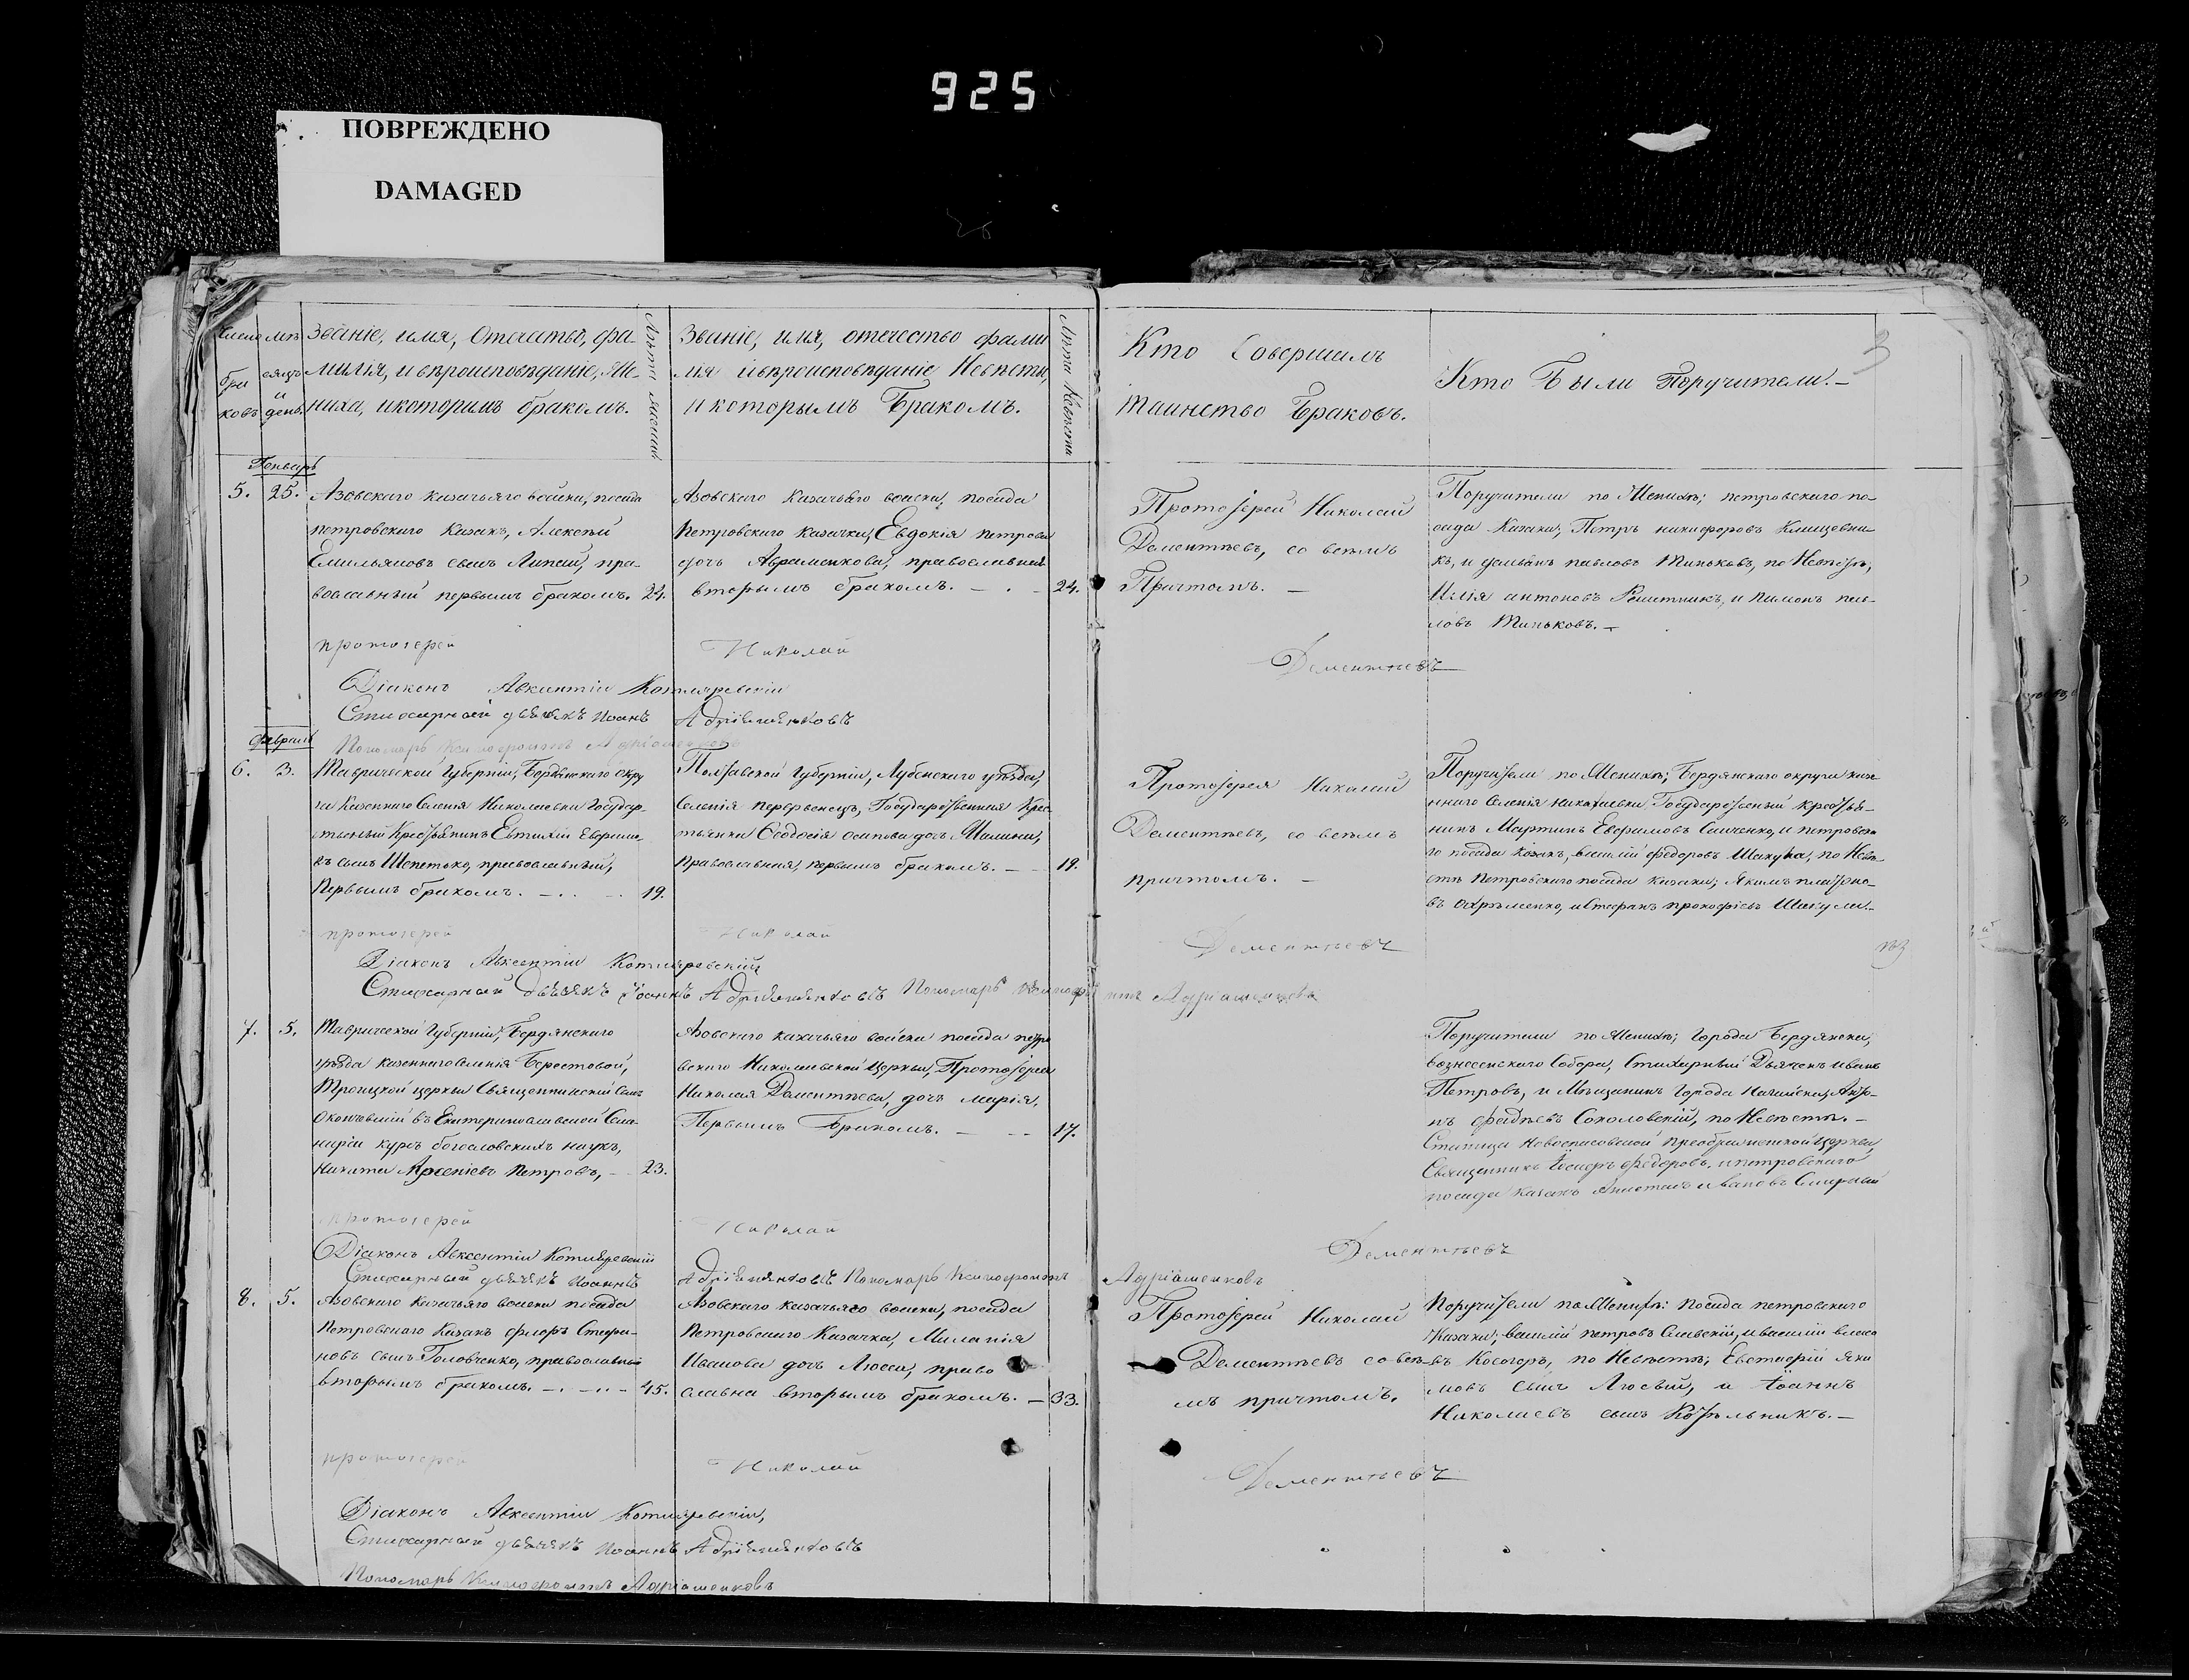 925
ПОВРЕЖДЕНО
DAMAGED
3
Число браковъ
Мѣсяцъ и день.
Званіе, имя, Отечество, фа-
милія, и вѣроисповѣданіе, Же-
ниха, и которымъ бракомъ.
Лѣта жениха
Званіе, имя, отечество фами
лія и вѣроисповѣданіе Невѣсты,
и которымъ Бракомъ.
Лѣта Невѣсты
Кто Совершалъ
Таинство Браковъ.
Кто Были Поручители.-
Генварь
5. 25.
Азовскаго казачьяго войска, посада
петровскаго Казакъ, Алексѣй
Емильяновъ сынъ Липей, пра-
вославный первымъ бракомъ. 24.
Азовскаго Казачьяго войска, посада
Петровскаго казачка, Евдокія петрова
дочь Авраменкова, православная
вторымъ бракомъ. - . - 24.
Протоіерей Николай
Дементьевъ, со всемъ
Причтомъ. -
Поручители по Женихѣ; петровскаго по-
сада Казаки; Петръ никифоровъ
и павловъ Миньковъ, по Невѣстѣ,
Илія антоновъ Решетникъ, и Пимонъ пав-
ловъ Миньковъ. -
протоіерей Николай Дементьевъ
Діаконъ Авксентій Котляревскій
Стихарный дьячекъ Иоаннъ Адріяшенковъ
Пономарь Ксенофонтъ Адріашенковъ
Февраль
6. 3.
Таврической Губерніи, Бердянскаго окру
га Казеннаго Селенія Николаевки Государ-
ственный Крестьянинъ Евтихій
въ сынъ Шепетько, православный,
Первымъ бракомъ. - . . - . 19.
Полтавской Губерніи, Лубенскаго уѣзда,
Селенія перервенецъ, Государственная Крес-
тьянка Ѳеодосія осипова дочь
Православная, первымъ бракомъ. - - 19.
Протоіерей Николай
Дементьевъ, со всемъ
причтомъ. -
Поручители по Женихѣ; Бердянскаго округа казе
ннаго Селенія николаевки Государственный крестья-
нинъ Мартинъ Евфимовъ Савченко, и петровска
го посада козакъ, василій федоровъ Шакула, по Невѣ-
стѣ Петровскаго посада казаки; Якимъ платоно-
въ Охрѣменко, и Стефанъ прокофіевъ Шакула. -
протоіерей Николай Дементьевъ
Діаконъ Авксентій Котляревскій
Стихарный дьячекъ Іоаннъ Адріяшенковъ Пономарь Ксенофонтъ Адріашенковъ
7. 5.
Таврической Губерніи, Бердянскаго
уѣзда казеннаго селенія Берестовой,
Троицкой церкви Священническій Сынъ
Окончившій въ Екатеринославской Семи-
наріи курсъ богословскихъ наукъ,
Никита Арсеніевъ Петровъ, - 23.
Азовскаго казачьяго войска посада петро
вскаго Николаевской Церкви, Протоіерея
Николая Дементьева, дочь марія,
Первымъ Бракомъ. - - - 17.
Поручители по Женихѣ; города Бердянска,
вознесенскаго Собора, Стихарный Дьячекъ иванъ
Петровъ, и Мѣщанинъ Города
Соколовскій, по Невѣстѣ. -
Станица новоспасовской Преображенской Церкви,
Священникъ Іосифъ федоровъ, и петровскаго
посада казакъ ивановъ Смирный
протоіерей Николай Дементьевъ
Діаконъ Авксентій Котляревскій
Стихарный дьячекъ Иоаннъ Адріяшенковъ Пономарь Ксенофонтъ Адріашенковъ
8. 5.
Азовскаго Казачьяго войска посада
Петровскаго Казакъ флоръ Стефа-
новъ сынъ Головченко, православный
вторымъ бракомъ. - . - . . - 45.
Азовскаго казачьяго войска, посада
Петровскаго Казачка, Миланія
Иванова дочь Люсая, право
славна вторымъ бракомъ. - 33.
Протоіерей Николай
Дементьевъ со все-
мъ причтомъ.
Поручители по Женихѣ: Посада петровскаго
Казаки; василій петровъ и василій
въ Косогоръ, по Невѣстѣ; Евстафій яки
мовъ сынъ Люсый, и Іоаннъ
Николаевъ сынъ
протоіерей Николай Дементьевъ
Діаконъ Авксентій Котляревскій,
Стихарный дьячекъ Иоаннъ Адріяшенковъ
Пономарь Ксенофонтъ Адріашенковъ